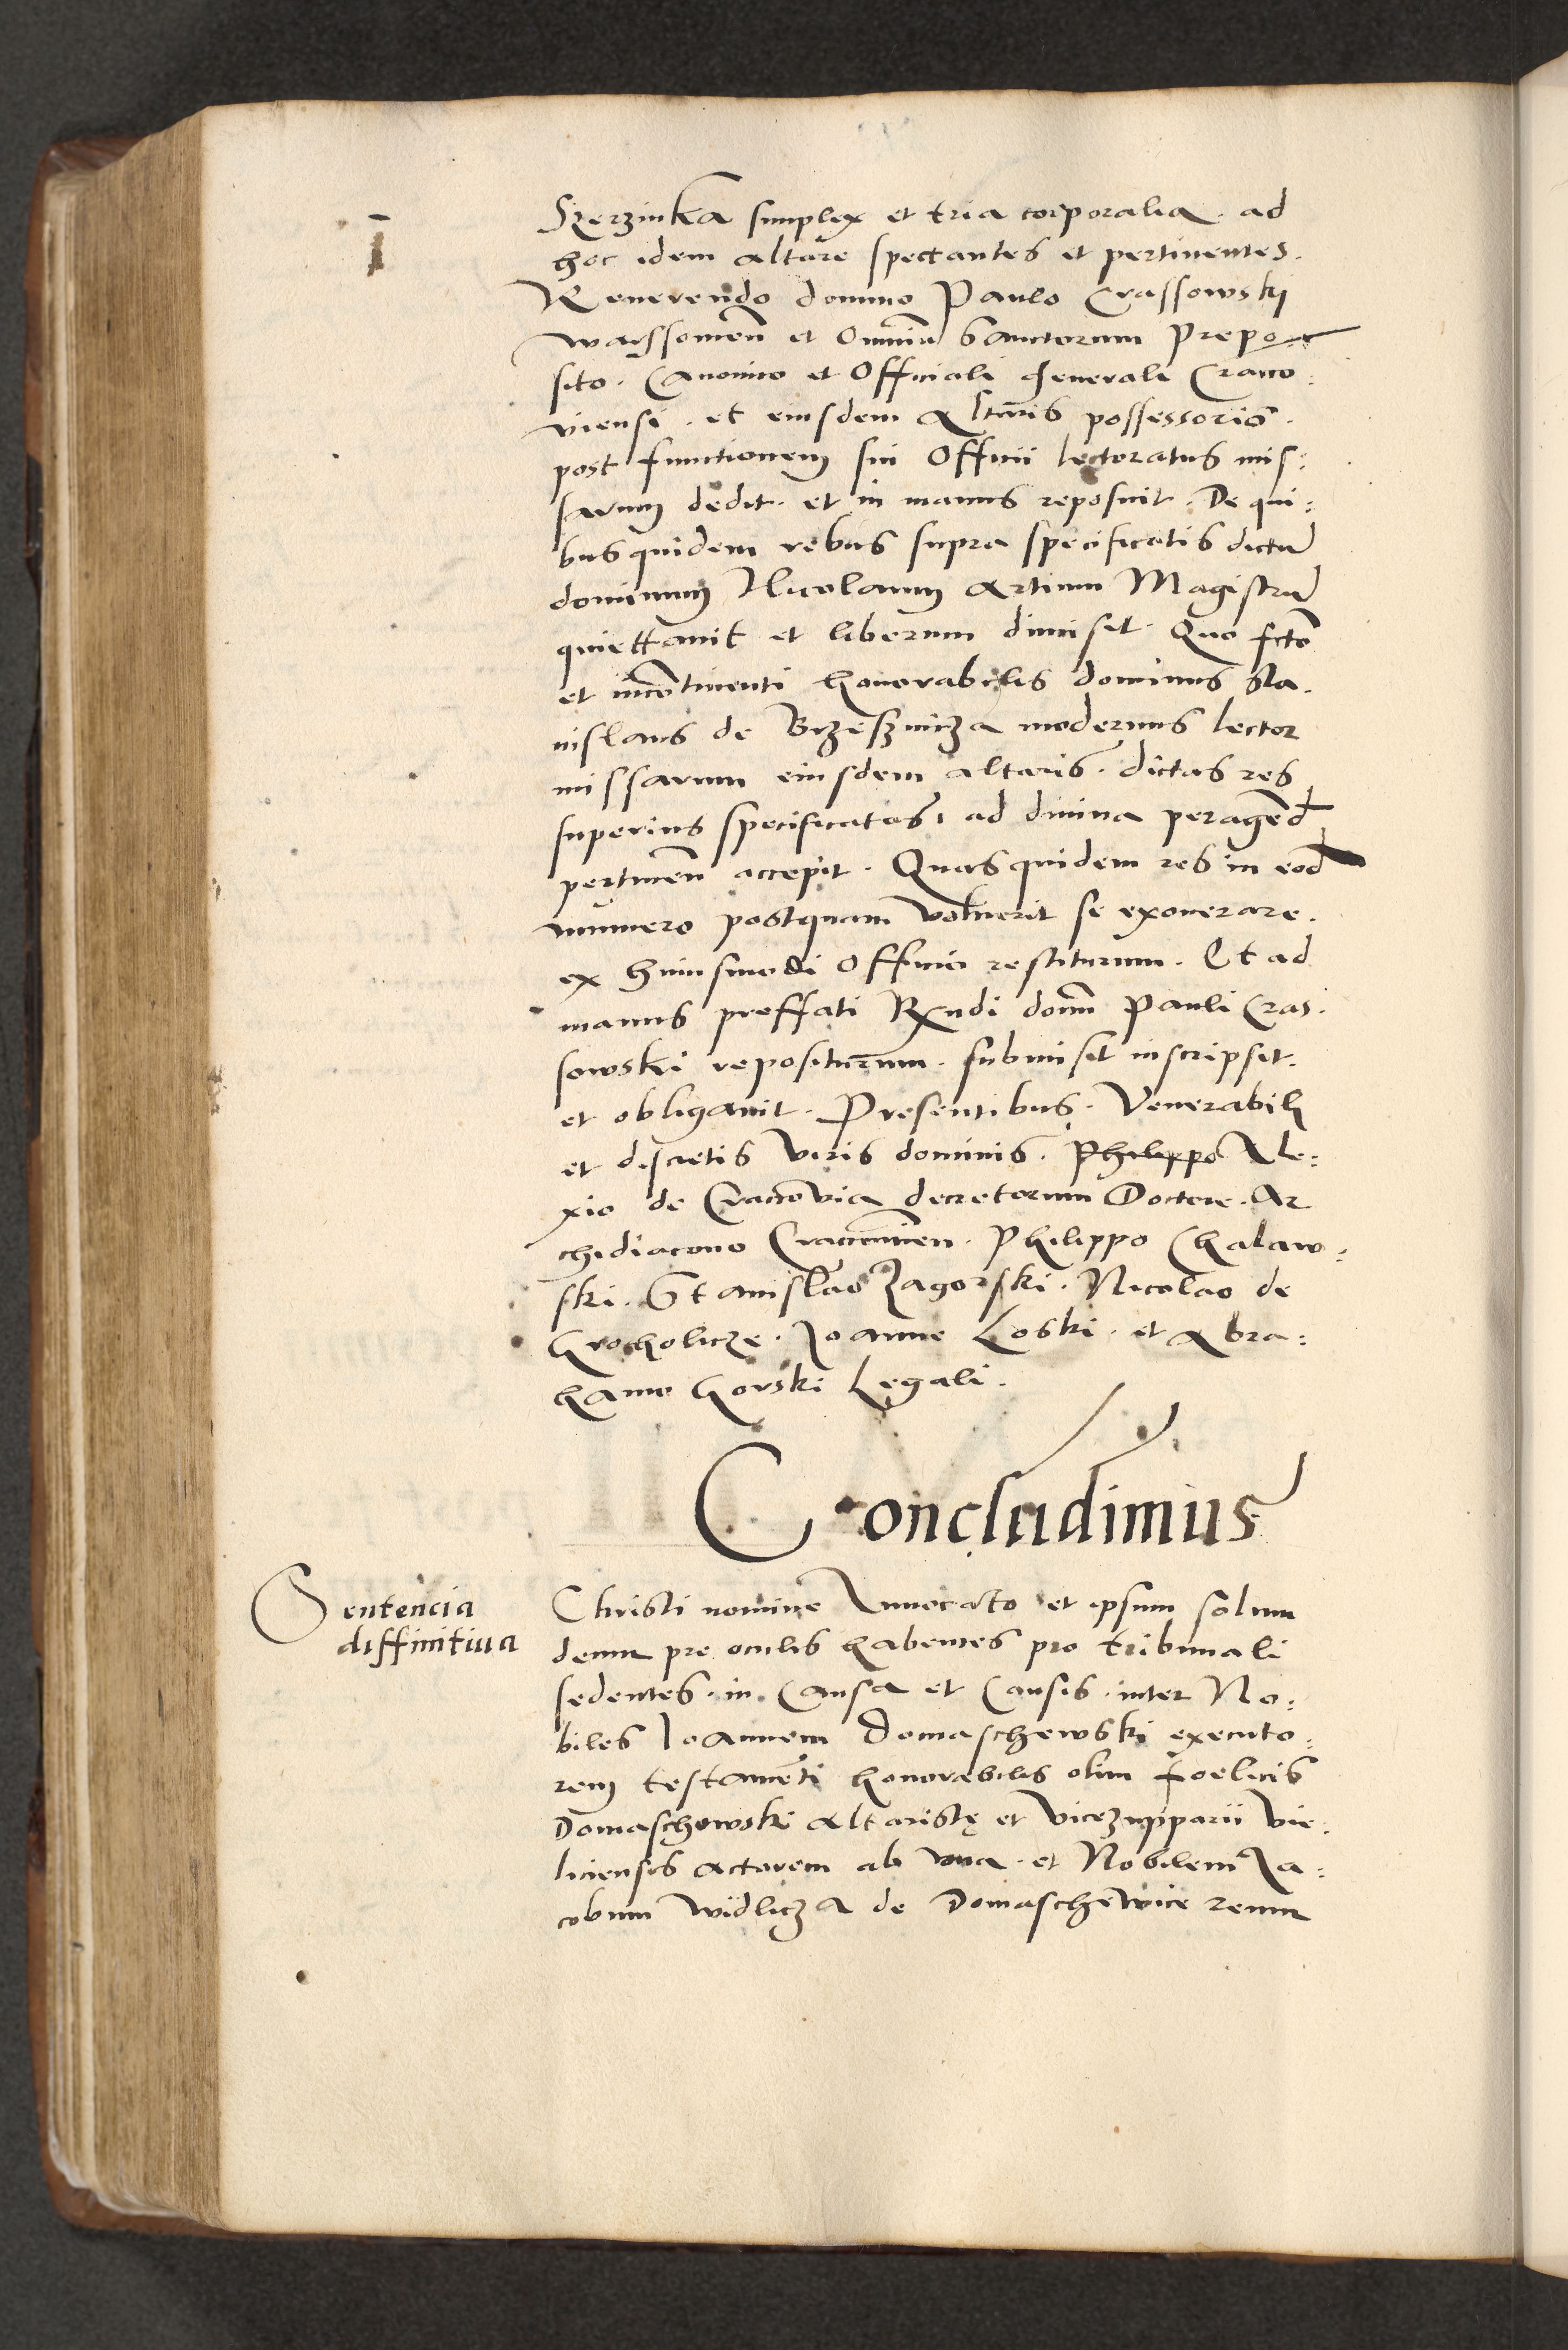 Szerzinka simplex et tria corporalia. ad
hoc idem altare spectantes et pertinentes.
Reverendo domino Paulo Crassowski
et Omniũ Sanctorum Prepo
sito. Canonico et Officiali generali Craco:
viensi. et eiusdem Altaris possessorio.
post functionem sui Officii lectoratus mis:
sarum dedit. et in manus reposuit. De qui:
bus quidem rebus supra specificatis dictũ
dominum Nicolaum Artium Magistrũ
quiettavit et liberum dimisit. Quo fcto
et incõtinenti honorabilis dominus Sta.
nislaus de Brzesznicza modernus lector
missarum eiusdem altaris. dictas res
superius specificatas, ad divina peragẽd
pertineñ accepit. Quas quidem res in eod
numero postquam voluerit se exonerare.
ex huiusmodi Officio restiturum. Et ad
manus preffati Rxndi domi Pauli Cras.
sowski repositurum. submisit inscripsit.
et obligavit. Presentibus. Venerabili
et discretis viris dominis. Philippo Ale:
xio de Cracovia decretorum Doctore. Ar
chidiacono Cracovien. Philippo Chalaw:
ski. Stanislao Zagorski. Nicolao de
Grocholicze. Joanne Loski. et Abra:
hamo Gorski Legali.
Concludimus
Sentencia
diffinitiua
Christi nomine Invocato et ipsum solum
deum pre oculis habentes pro tribunali
sedentes. in Causa et Causis. inter No:
biles Joannem Domaschewski executo:
rem testamẽti honorabilis olim foelicis
Domaschowski altaristę et vicezupparii vie.
liciensis actorem ab una. et Nobilem Ja:
cobum Widlicza de Domaschewice reum